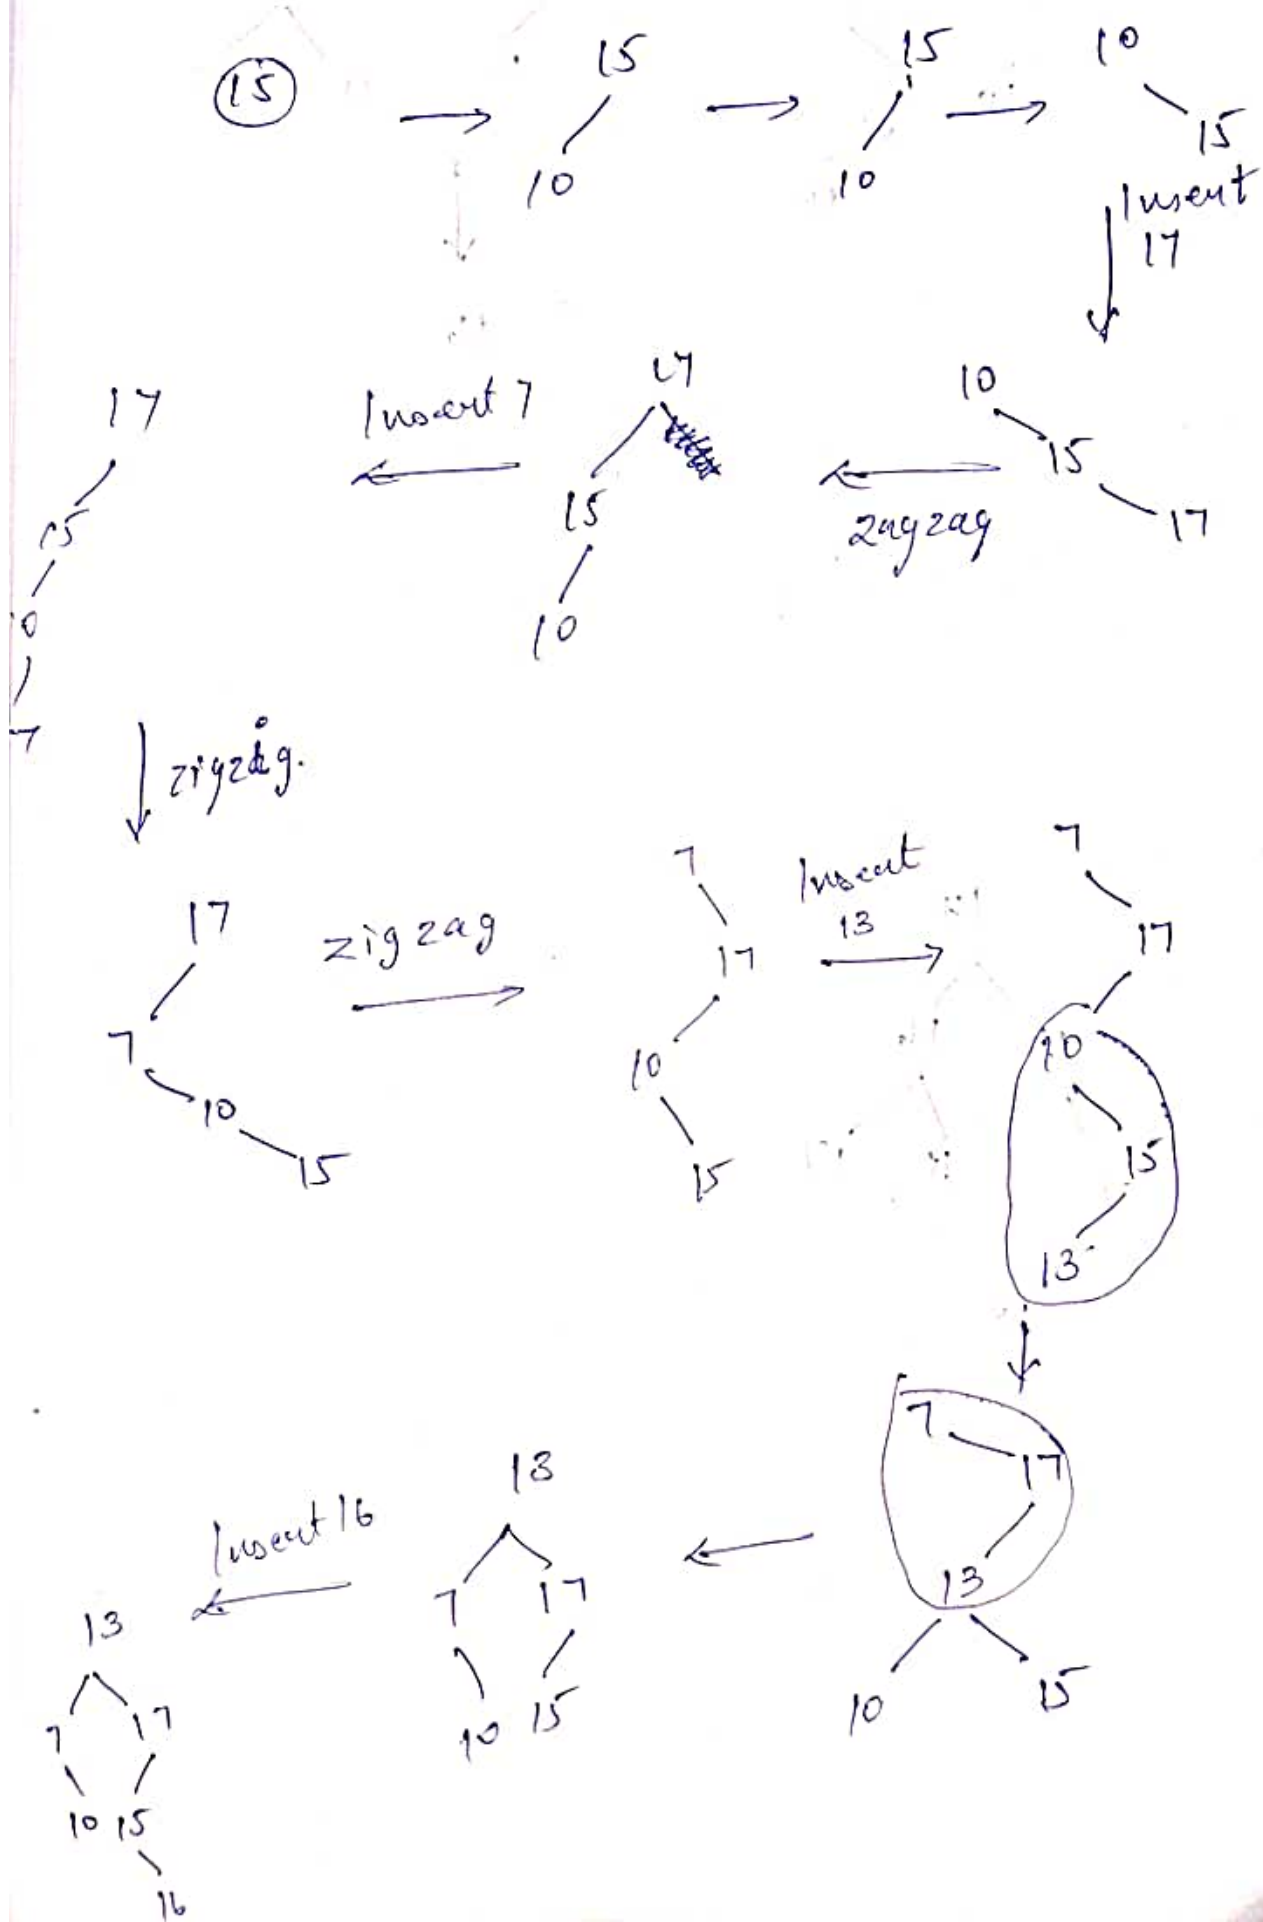 15
15
10
15
10
10
15
Insert
17
10
15
17
zagzag
17
15
10
Insert 7
17
15
0
7
zigzig.
17
7
10
15
zigzag
7
17
10
15
Insert
13
7
17
10
15
13
7
17
13
10
15
13
7
17
10
15
Insert 16
13
7
17
10
15
16